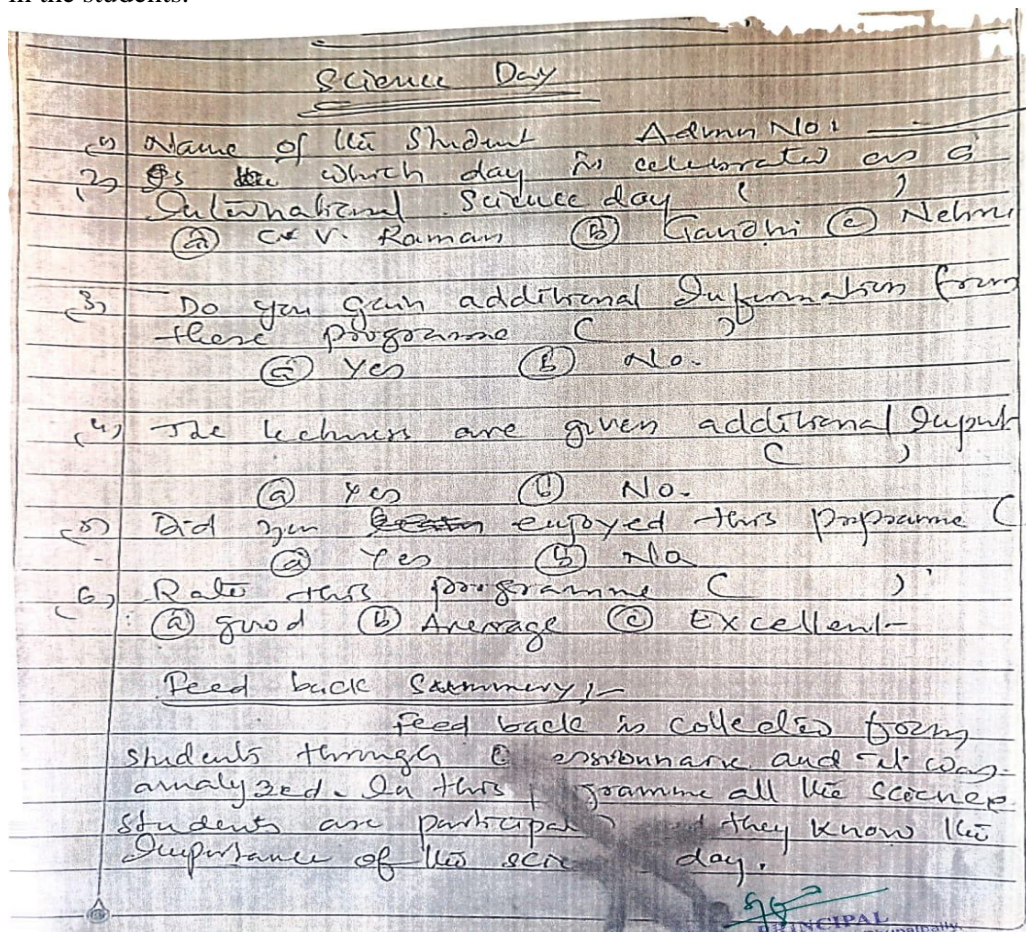 in the students.
Science Day
(1) Name of the Student Admn No:
(2) which day is celebrated as a
International Science day ( )
(a) C.V. Raman (b) Gandhi (c) Nehru
(3) Do you gain additional Information from
these programme ( )
(a) Yes (b) No.
(4) The are given additional Input
( )
(a) Yes (b) No.
(5) Did you enjoyed this programme (
(a) Yes (b) No
(6) Rate this programme ( )
(a) good (b) Average (c) Excellent
Feed back Summery:-
Feed back is collected form
students through and it was
analyzed. In this all the science
students are they know the
Importance of the day.
PRINCIPAL